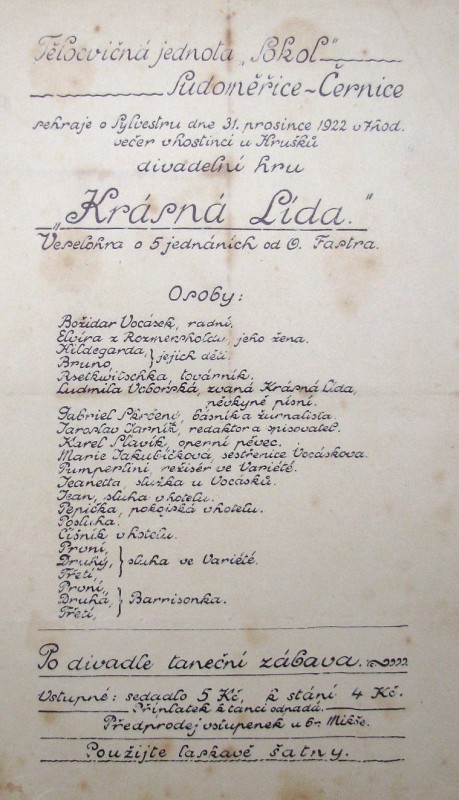 Tělocvičná jednota „Sokol"
Sudoměřice-Černice
sehraje o Sylvestru dne 31. prosince 1922 v 7 hod.
večer v hostinci u Hrušků
divadelní hru
„Krásná Lída."
Veselohra o 5 jednáních od O. Fastra.
Osoby:
Božidar Vocásek, radní.
Elvíra z Rozmersholdu, jeho žena.
Hildegarda,
Bruno, } jejich děti.
Rsetkwitschka, továrník.
Ludmila Vobořská, zvaná Krásná Lída,
pěvkyně písní.
Gabriel, básník a žurnalista.
Jaroslav Jarník, redaktor a spisovatel.
Karel Slavík, operní pěvec.
Marie Jakubíčková, sestřenice Vocáskova.
Pumperlini, režisér ve Variété.
Jeanetta, služka u Vocásků.
Jean, sluha v hotelu.
Pepička, pokojská v hotelu.
Posluha.
Číšník v hotelu.
První,
Druhý, } sluha ve Variété.
Třetí,
První,
Druhá, } Barrisonka.
Třetí,
Po divadle taneční zábava.
Vstupné: sedadlo 5 Kč, k stání 4 Kč.
Příplatek k tanci odpadá.
Předprodej vstupenek u br. Mikše.
Použijte laskavě šatny.